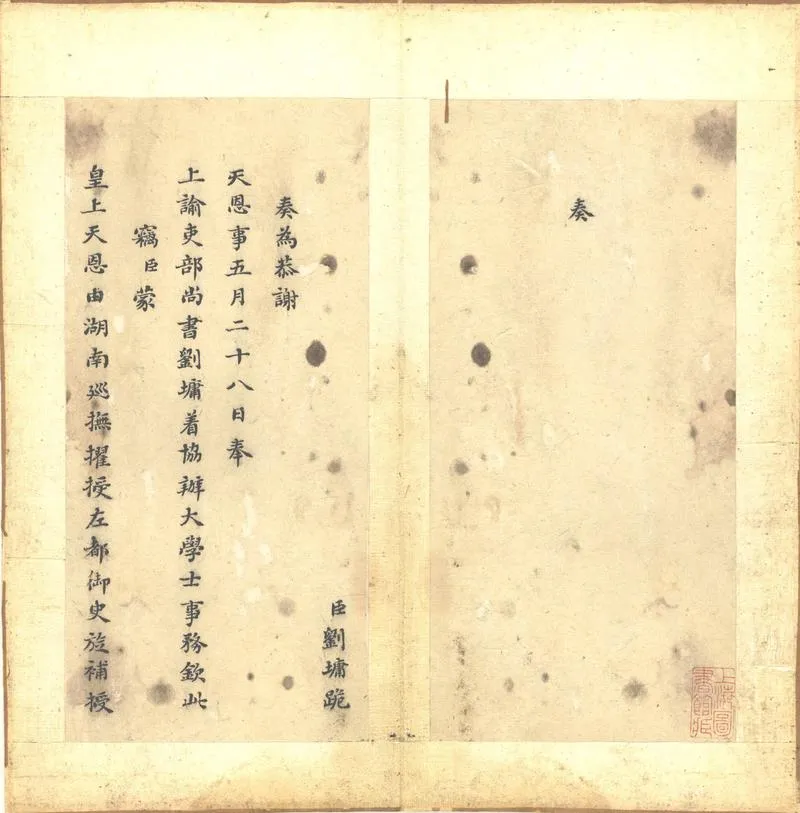 奏
上海圖
書館所
臣劉墉跪
奏為恭謝
天恩事五月二十八日奉
上諭吏部尚書劉墉着協辦大學士事務欽此
竊臣蒙
皇上天恩由湖南巡撫擢授左都御史旋補授